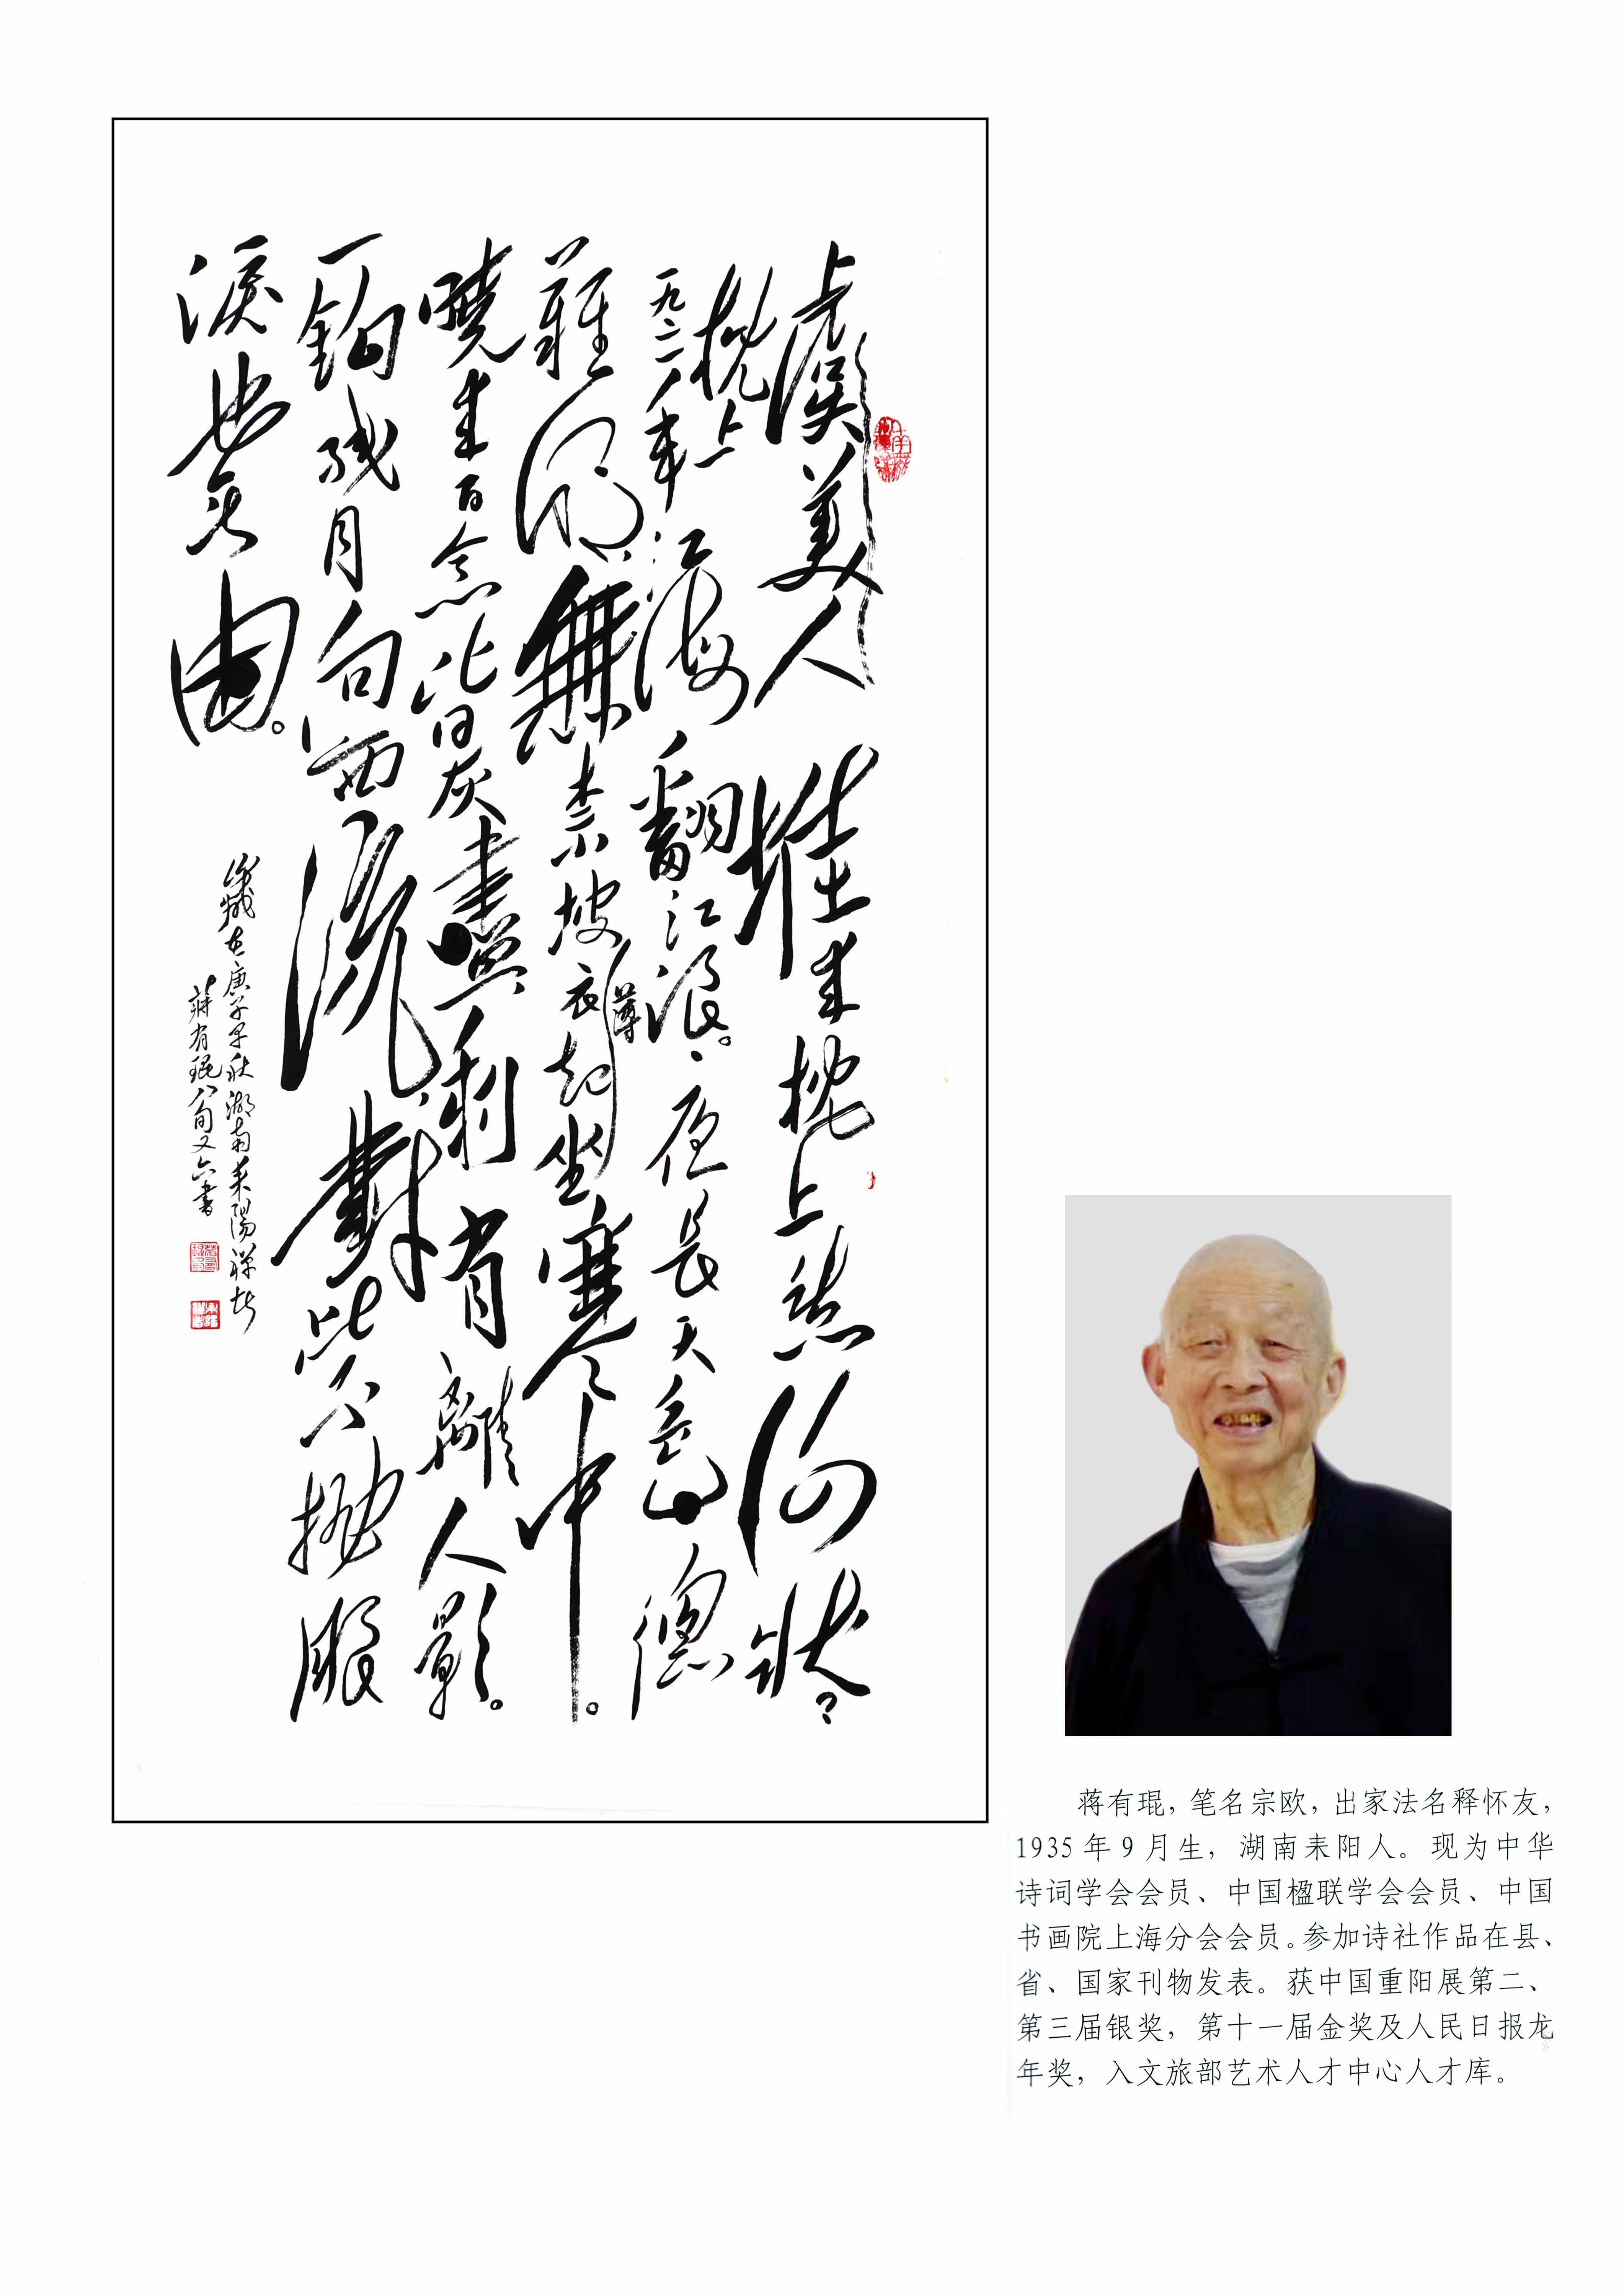 虞美人 堆来枕上愁何状
枕上
一九二一年 江海翻江浪。夜長天色總
難明，無柰披衣起坐薄寒中。
曉来百念皆灰盡剩有離人影。
一鈎残月向西流，對此不抛眼
淚也无由。
歲在庚子早秋湖南耒陽
蒋有琨八旬又六書
蒋有琨，笔名宗欧，出家法名释怀友，
1935年9月生，湖南耒阳人。现为中华
诗词学会会员、中国楹联学会会员、中国
书画院上海分会会员。参加诗社作品在县、
省、国家刊物发表。获中国重阳展第二、
第三届银奖，第十一届金奖及人民日报龙
年奖，入文旅部艺术人才中心人才库。